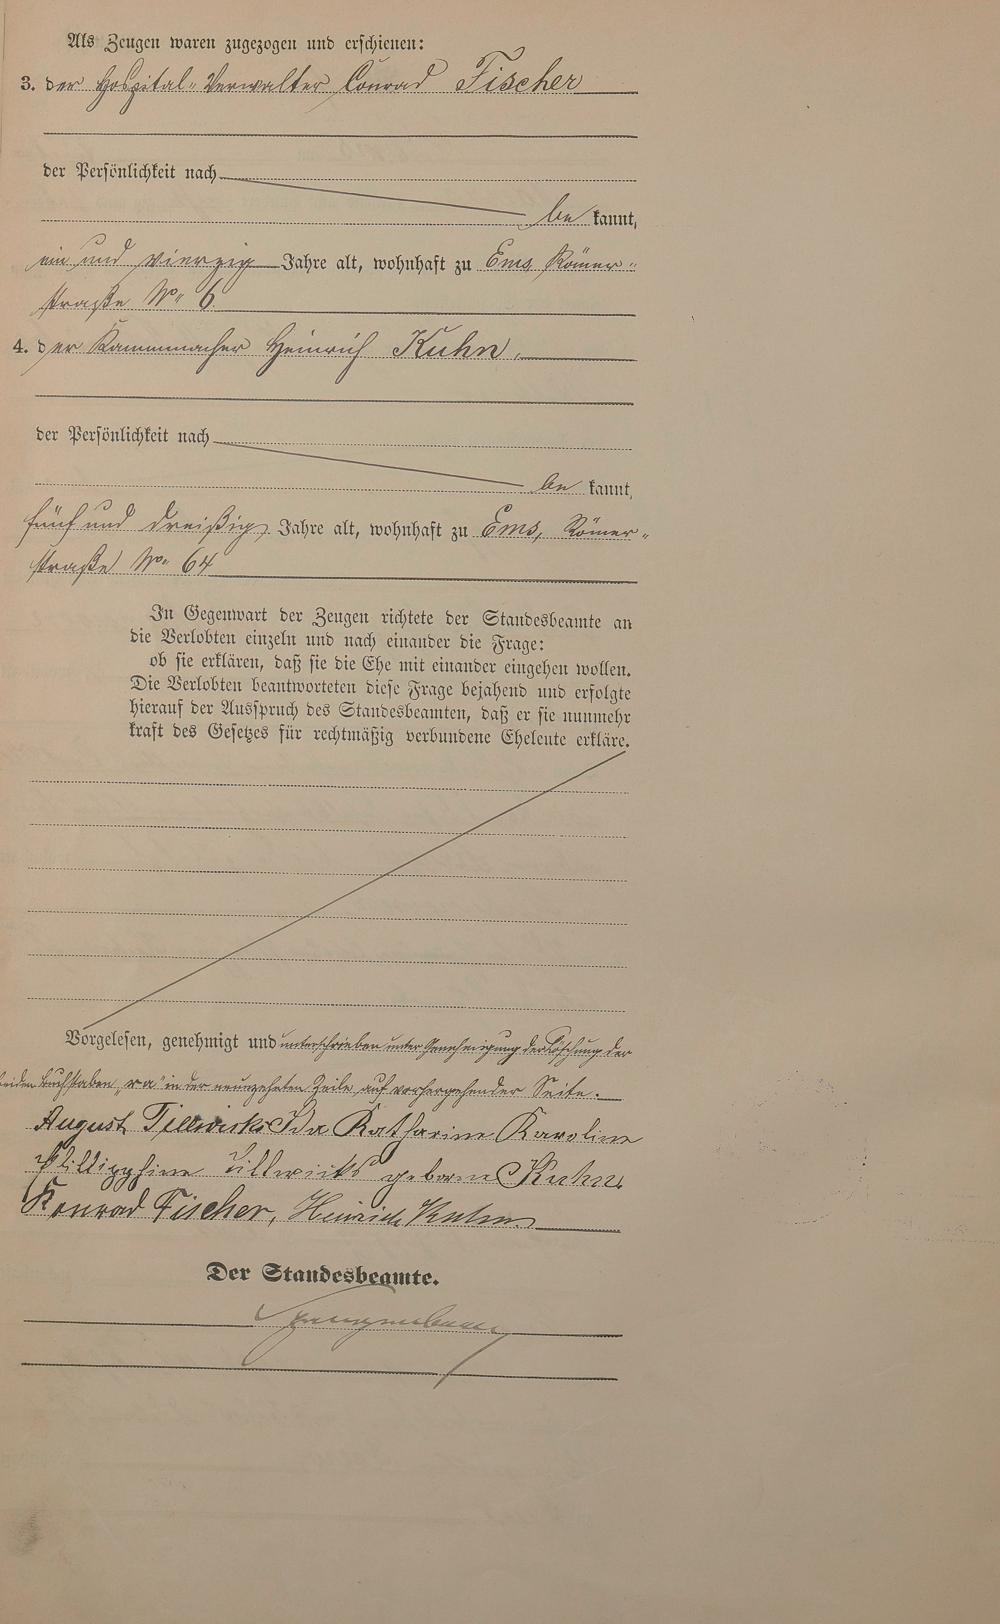 Als Zeugen waren zugezogen und erschienen:
3. der Hospital-Verwalter Conrad Fischer
der Persönlichkeit nach
bekannt,
ein und vierzig Jahre alt, wohnhaft zu Ems, Römer-
straße No 6.
4. der Kammmacher Heinrich Kuhn,
der Persönlichkeit nach
bekannt,
fünf und dreißig Jahre alt, wohnhaft zu Ems, Römer-
straße No 64
In Gegenwart der Zeugen richtete der Standesbeamte an
die Verlobten einzeln und nach einander die Frage:
ob sie erklären, daß sie die Ehe mit einander eingehen wollen.
Die Verlobten beantworteten diese Frage bejahend und erfolgte
hierauf der Ausspruch des Standesbeamten, daß er sie nunmehr
kraft des Gesetzes für rechtmäßig verbundene Eheleute erkläre.
Vorgelesen, genehmigt und unterschrieben unter Genehmigung der Löschung der
beiden Buchstaben „ra" in der neunzehnten Zeile auf vorhergehender Seite.
August Tillwicks Ida Katharine Karoline
Phillippine Tillwicks geborne Kuhn.
Konrad Fischer, Heinrich Kuhn
Der Standesbeamte.